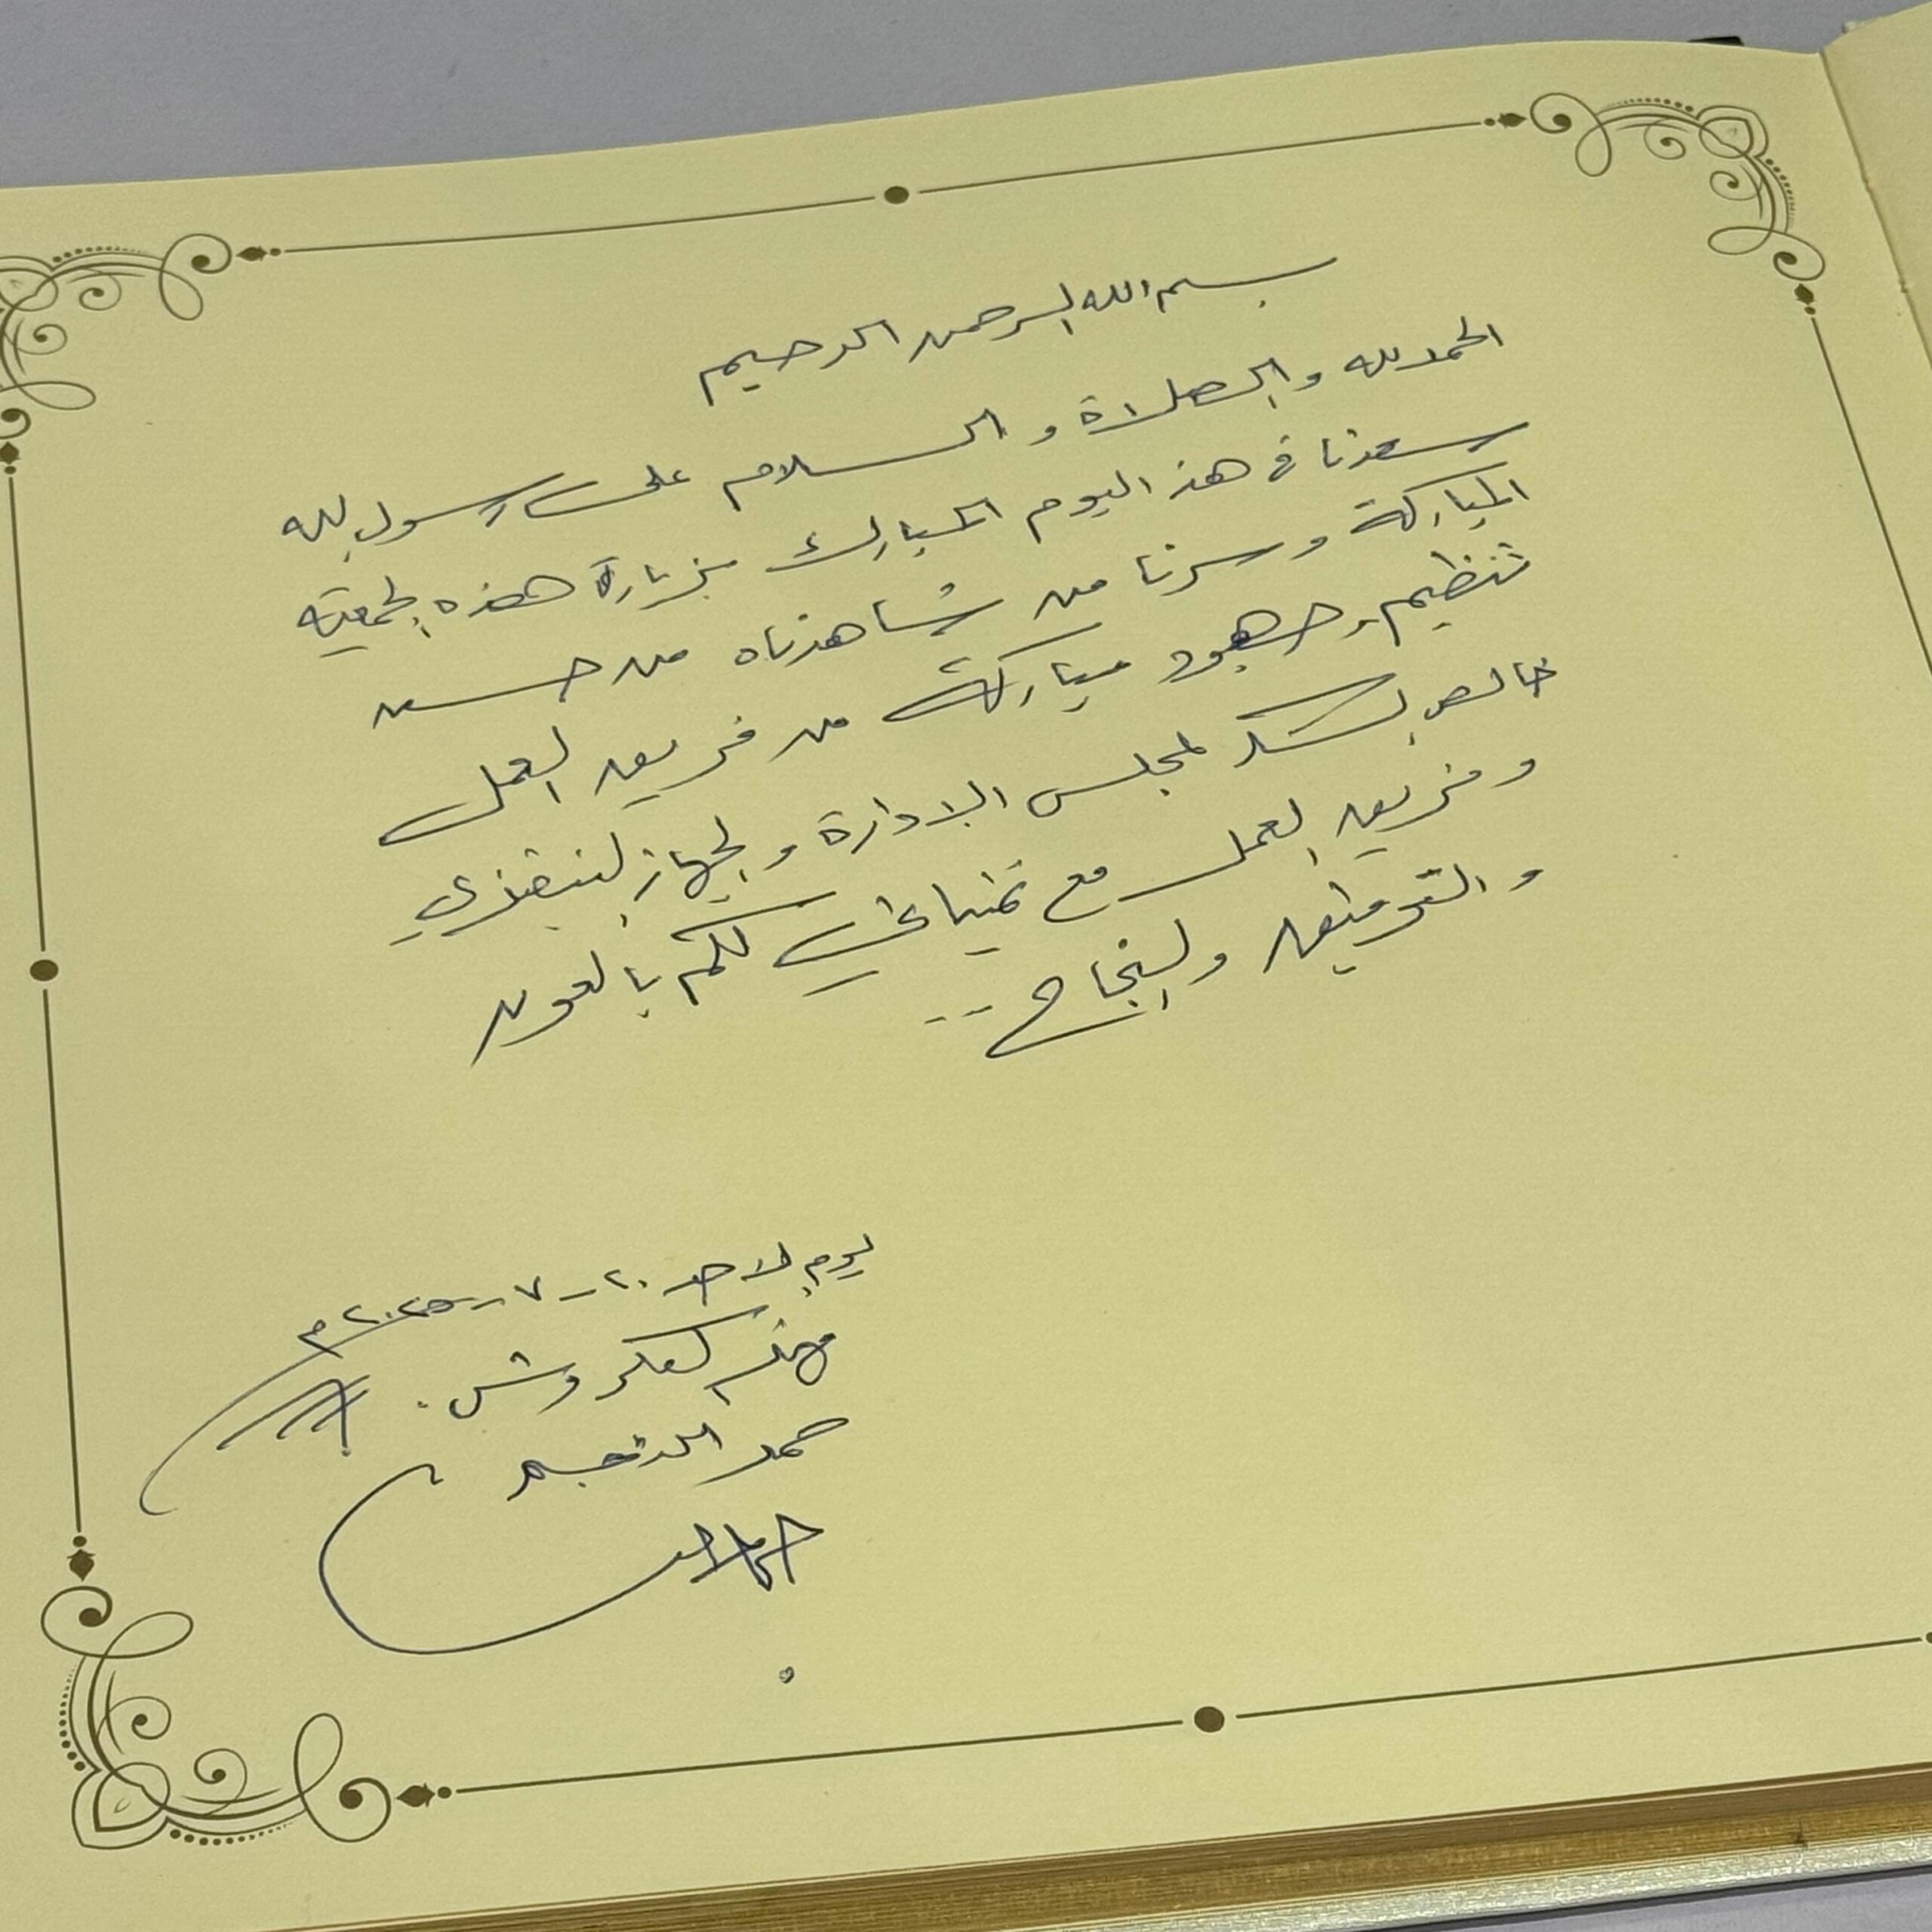 بسم الله الرحمن الرحيم
الحمد لله والصلاة و السلام على رسول الله
سعدنا في هذا اليوم المبارك بزيارة هذه الجمعية
المباركة وسرنا من شاهدناه من حسن
تنظيم وجهود مباركة من فريق العمل
خالص الشكر لمجلس الادارة والجهاز التنفيذي
وفريق العمل مع تمنياتي لكم بالعون
والتوفيق والنجاح ..
يوم الاحد ٢٠-٧-٢٠٢٥م
حمد